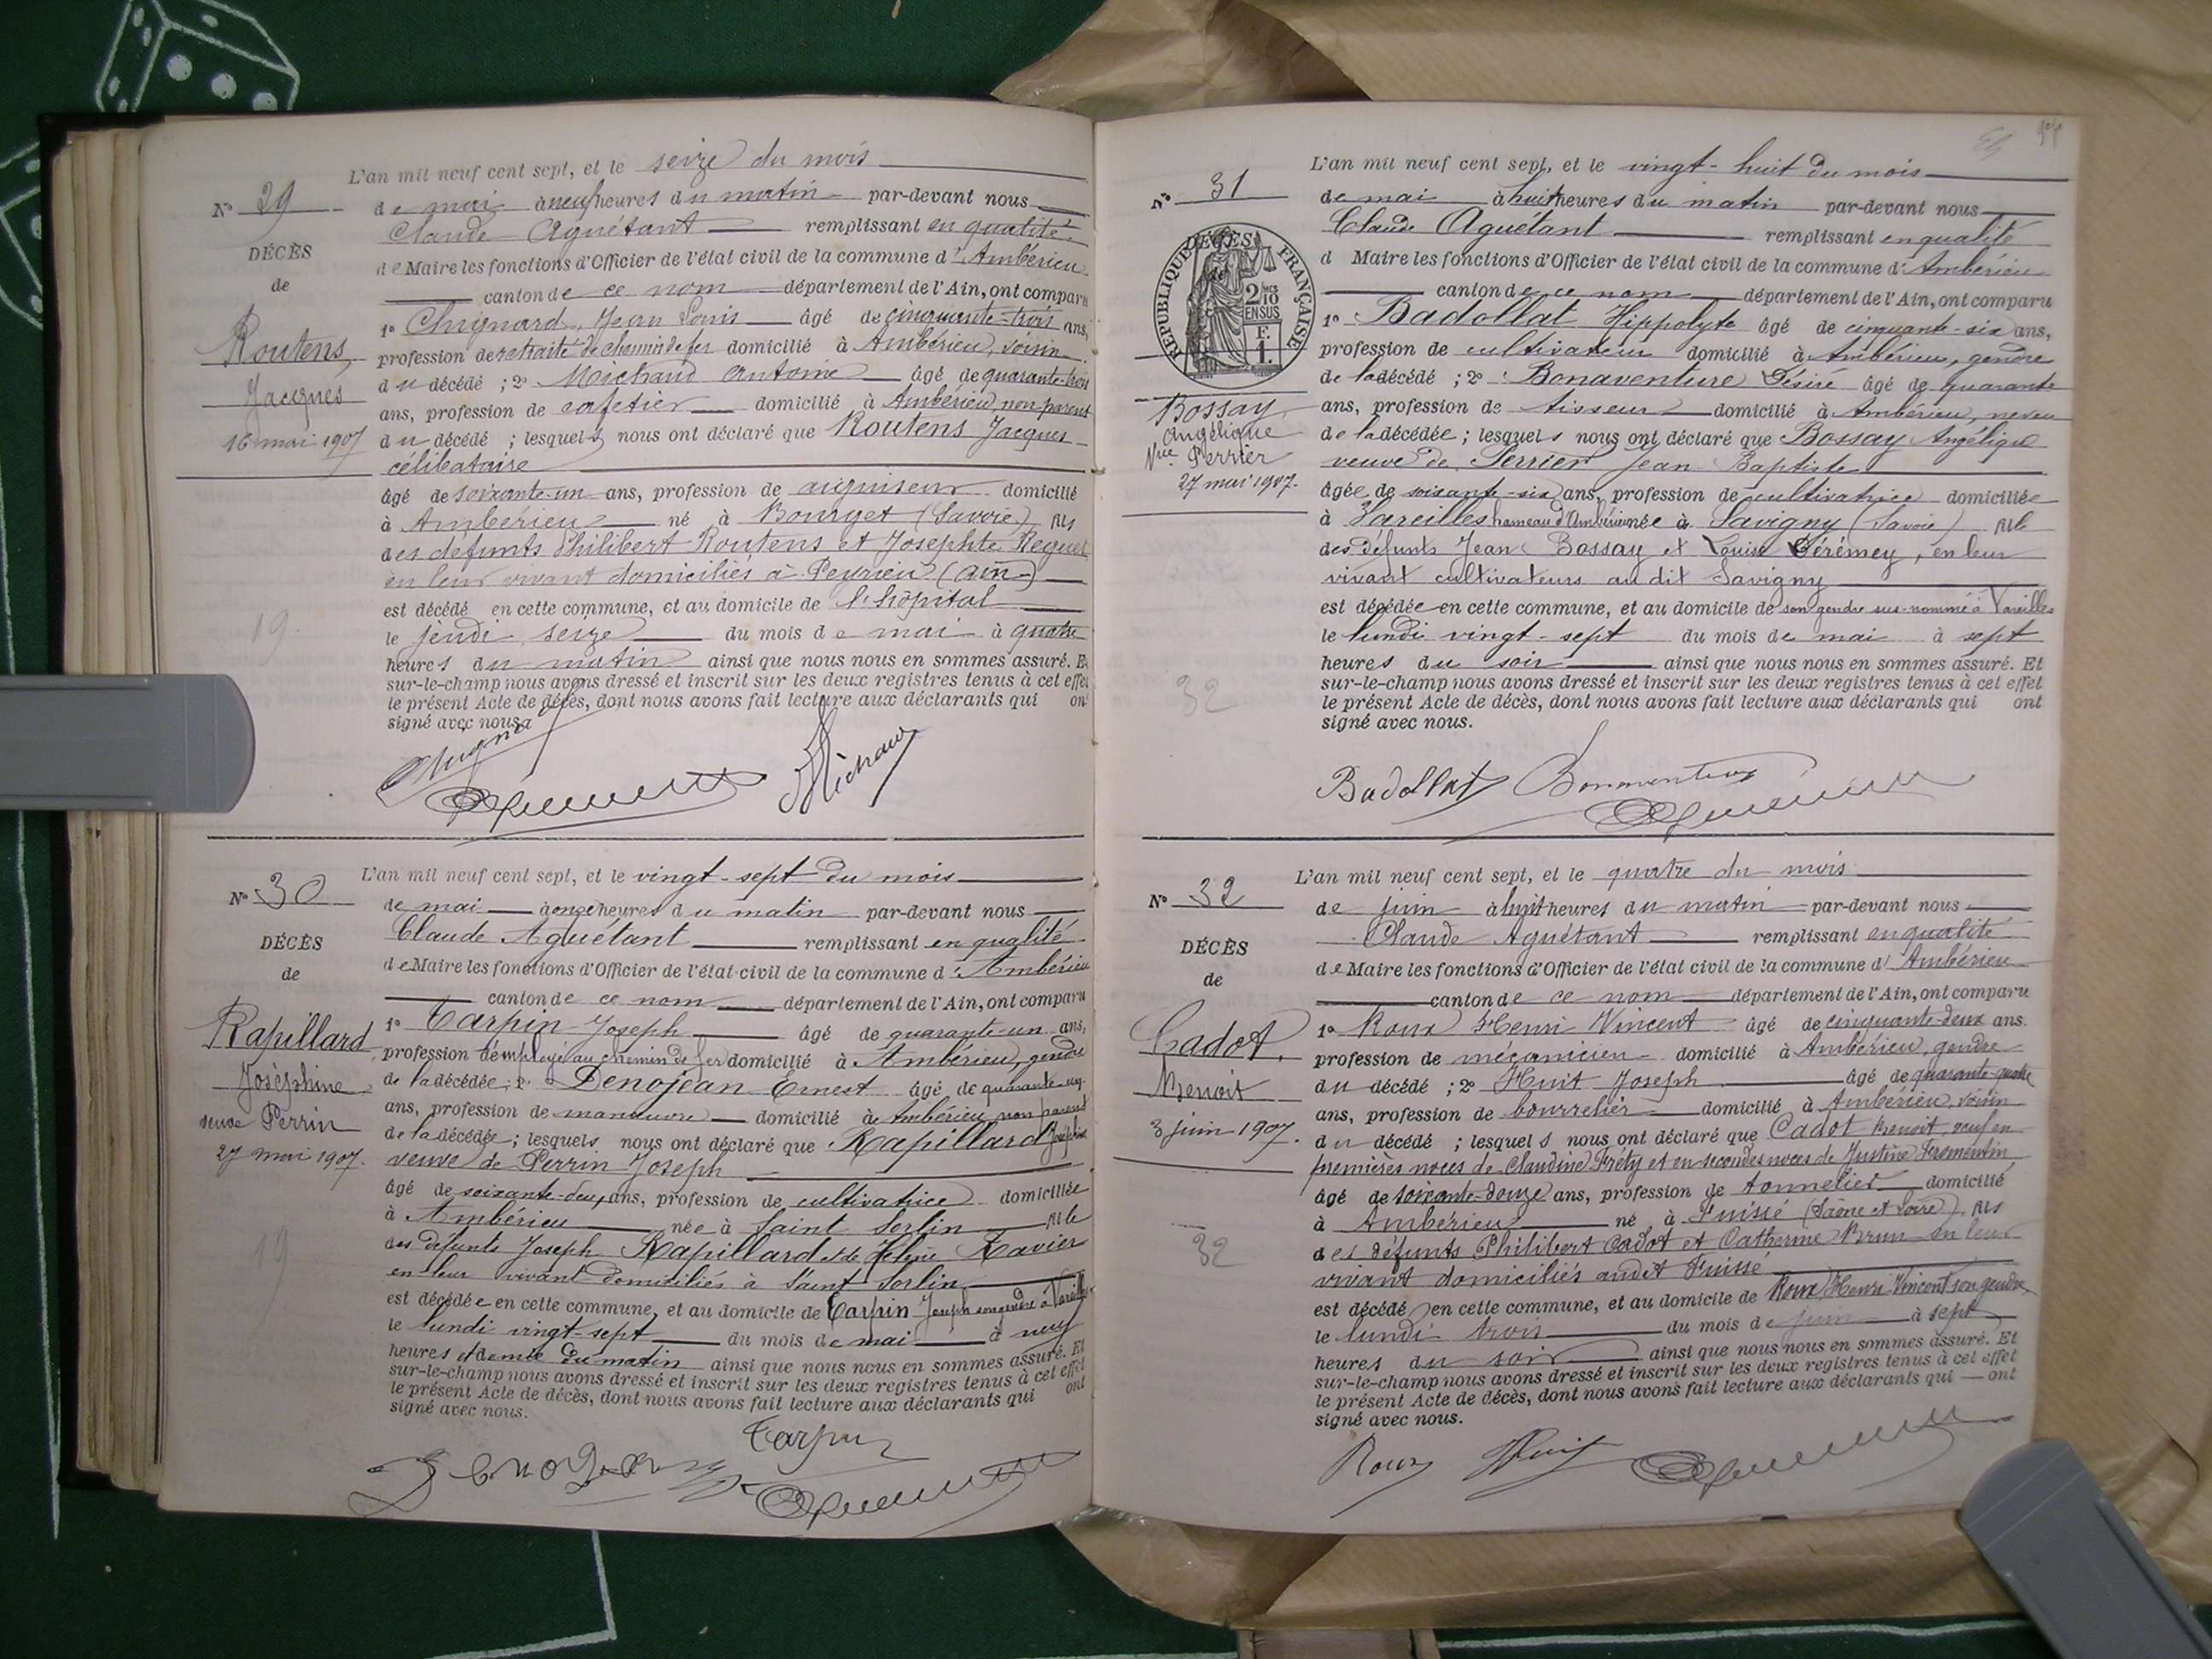 L'an mil neuf cent sept, et le seize du mois
N° 29
de mai à neuf heures du matin par-devant nous
Claude Aguétant remplissant en qualité
DÉCÈS
de Maire les fonctions d'Officier de l'état civil de la commune d' Ambérieu
de
canton de ce nom département de l'Ain, ont comparu
1° Chignard, Jean Louis âgé de cinquante-trois ans,
Routens
profession de retraité de chemin de fer domicilié à Ambérieu, voisin
Jacques
du décédé ; 2° Michaud Antoine âgé de quarante-trois
ans, profession de cafetier domicilié à Ambérieu, non parent
16 mai 1907
du décédé ; lesquels nous ont déclaré que Routens Jacques
célibataire
âgé de soixante-un ans, profession de aiguiseur domicilié
à Ambérieu né à Bourget (Savoie) fils
des défunts Philibert Routens et Josephte
en leur vivant domiciliés à Peyrieu (Ain)
est décédé en cette commune, et au domicile de l'hôpital
19
le jeudi seize du mois de mai à quatre
heures du matin ainsi que nous nous en sommes assuré. Et
sur-le-champ nous avons dressé et inscrit sur les deux registres tenus à cet effet
le présent Acte de décès, dont nous avons fait lecture aux déclarants qui ont
signé avec nous.
Michaud
L'an mil neuf cent sept, et le vingt-sept du mois
N° 30
de mai à onze heures du matin par-devant nous
Claude Aguétant remplissant en qualité
DÉCÈS
de Maire les fonctions d'Officier de l'état civil de la commune d' Ambérieu
de
canton de ce nom département de l'Ain, ont comparu
1° Tarpin Joseph âgé de quarante-un ans,
Rapillard
profession d'employé au chemin de fer domicilié à Ambérieu, gendre
Joséphine
de la décédée ; 2° Denojean Ernest âgé de quarante-un
ans, profession de manœuvre domicilié à Ambérieu non parent
veuve Perrin
de la décédée ; lesquels nous ont déclaré que Rapillard Joséphine
27 mai 1907.
veuve de Perrin Joseph
âgé de soixante-deux ans, profession de cultivatrice domiciliée
à Ambérieu née à Saint Sorlin fille
des défunts Joseph Rapillard et de Xavier
en leur vivant domiciliés à Saint Sorlin
19
est décédée en cette commune, et au domicile de Tarpin Joseph son gendre à Vareilles
le lundi vingt-sept du mois de mai à neuf
heures et demie du matin ainsi que nous nous en sommes assuré. Et
sur-le-champ nous avons dressé et inscrit sur les deux registres tenus à cet effet
le présent Acte de décès, dont nous avons fait lecture aux déclarants qui ont
signé avec nous.
Tarpin
Denojean
L'an mil neuf cent sept, et le vingt-huit du mois
N° 31
de mai à huit heures du matin par-devant nous
Claude Aguétant remplissant en qualité
RÉPUBLIQUE FRANÇAISE
DÉCÈS
de
2/10 EN SUS
F. 1.
d Maire les fonctions d'Officier de l'état civil de la commune d' Ambérieu
canton de ce nom département de l'Ain, ont comparu
1° Badollat Hippolyte âgé de cinquante-six ans,
profession de cultivateur domicilié à Ambérieu, gendre
de la décédé ; 2° Bonaventure Désiré âgé de quarante
Bossay
ans, profession de tisseur domicilié à Ambérieu, neveu
Angélique
de la décédée ; lesquels nous ont déclaré que Bossay Angélique
Vve Perrier
veuve de Perrier Jean-Baptiste
27 mai 1907.
âgée de soixante-six ans, profession de cultivatrice domiciliée
à Vareilles hameau d'Ambérieu née à Savigny (Savoie) fille
des défunts Jean Bossay et Louise Gérémey, en leur
vivant cultivateurs au dit Savigny
est décédée en cette commune, et au domicile de son gendre sus-nommé à Vareilles
le lundi vingt-sept du mois de mai à sept
heures du soir ainsi que nous nous en sommes assuré. Et
sur-le-champ nous avons dressé et inscrit sur les deux registres tenus à cet effet
32
le présent Acte de décès, dont nous avons fait lecture aux déclarants qui ont
signé avec nous.
Badollat Bonaventure
L'an mil neuf cent sept, et le quatre du mois
N° 32
de juin à huit heures du matin par-devant nous
Claude Aguétant remplissant en qualité
DÉCÈS
de Maire les fonctions d'Officier de l'état civil de la commune d' Ambérieu
de
canton de ce nom département de l'Ain, ont comparu
1° Roux Henri Vincent âgé de cinquante-deux ans.
Cadot
profession de mécanicien domicilié à Ambérieu, gendre
Benoit
du décédé ; 2° Huit Joseph âgé de quarante-quatre
ans, profession de bourrelier domicilié à Ambérieu, voisin
3 juin 1907.
du décédé ; lesquels nous ont déclaré que Cadot Benoit, veuf en
premières noces de Claudine Fréty et en secondes noces de Justine Fromentin
âgé de soixante-douze ans, profession de tonnelier domicilié
à Ambérieu né à Fuissé (Saône et Loire) fils
32
des défunts Philibert Cadot et Catherine Brun en leur
vivant domiciliés audit Fuissé
est décédé en cette commune, et au domicile de Roux Henri Vincent son gendre
le lundi trois du mois de juin à sept
heures du soir ainsi que nous nous en sommes assuré. Et
sur-le-champ nous avons dressé et inscrit sur les deux registres tenus à cet effet
le présent Acte de décès, dont nous avons fait lecture aux déclarants qui ont
signé avec nous.
Roux Huit